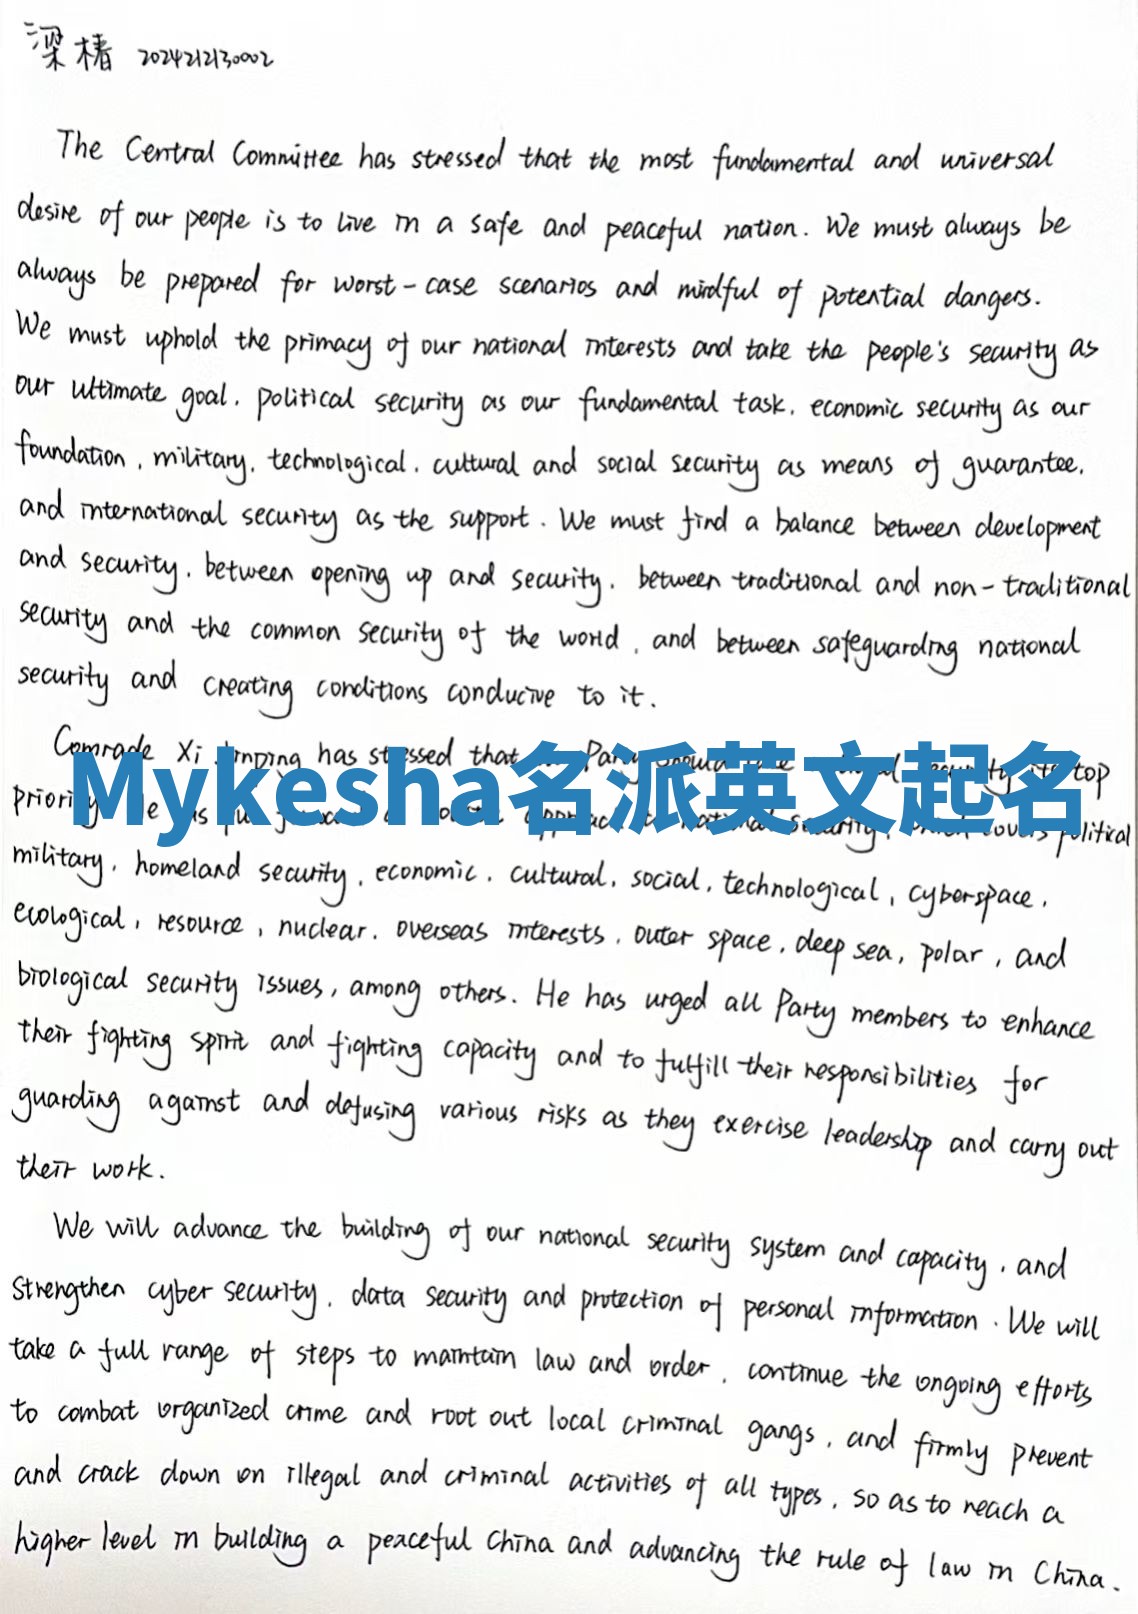 梁椿 2024212130002
The Central Committee has stressed that the most fundamental and universal
desire of our people is to live in a safe and peaceful nation. We must always be
always be prepared for worst-case scenarios and mindful of potential dangers.
We must uphold the primacy of our national interests and take the people's security as
our ultimate goal, political security as our fundamental task, economic security as our
foundation, military, technological, cultural and social security as means of guarantee,
and international security as the support. We must find a balance between development
and security, between opening up and security, between traditional and non-traditional
security and the common security of the world, and between safeguarding national
security and creating conditions conducive to it.
Comrade Xi Jinping has stressed that Party should security its top
priority. national security, which covers political
Mykesha名派英文起名
military, homeland security, economic, cultural, social, technological, cyberspace,
ecological, resource, nuclear, overseas interests, outer space, deep sea, polar, and
biological security issues, among others. He has urged all Party members to enhance
their fighting spirit and fighting capacity and to fulfill their responsibilities for
guarding against and defusing various risks as they exercise leadership and carry out
their work.
We will advance the building of our national security system and capacity, and
strengthen cyber security, data security and protection of personal information. We will
take a full range of steps to maintain law and order, continue the ongoing efforts
to combat organized crime and root out local criminal gangs, and firmly prevent
and crack down on illegal and criminal activities of all types, so as to reach a
higher level in building a peaceful China and advancing the rule of law in China.